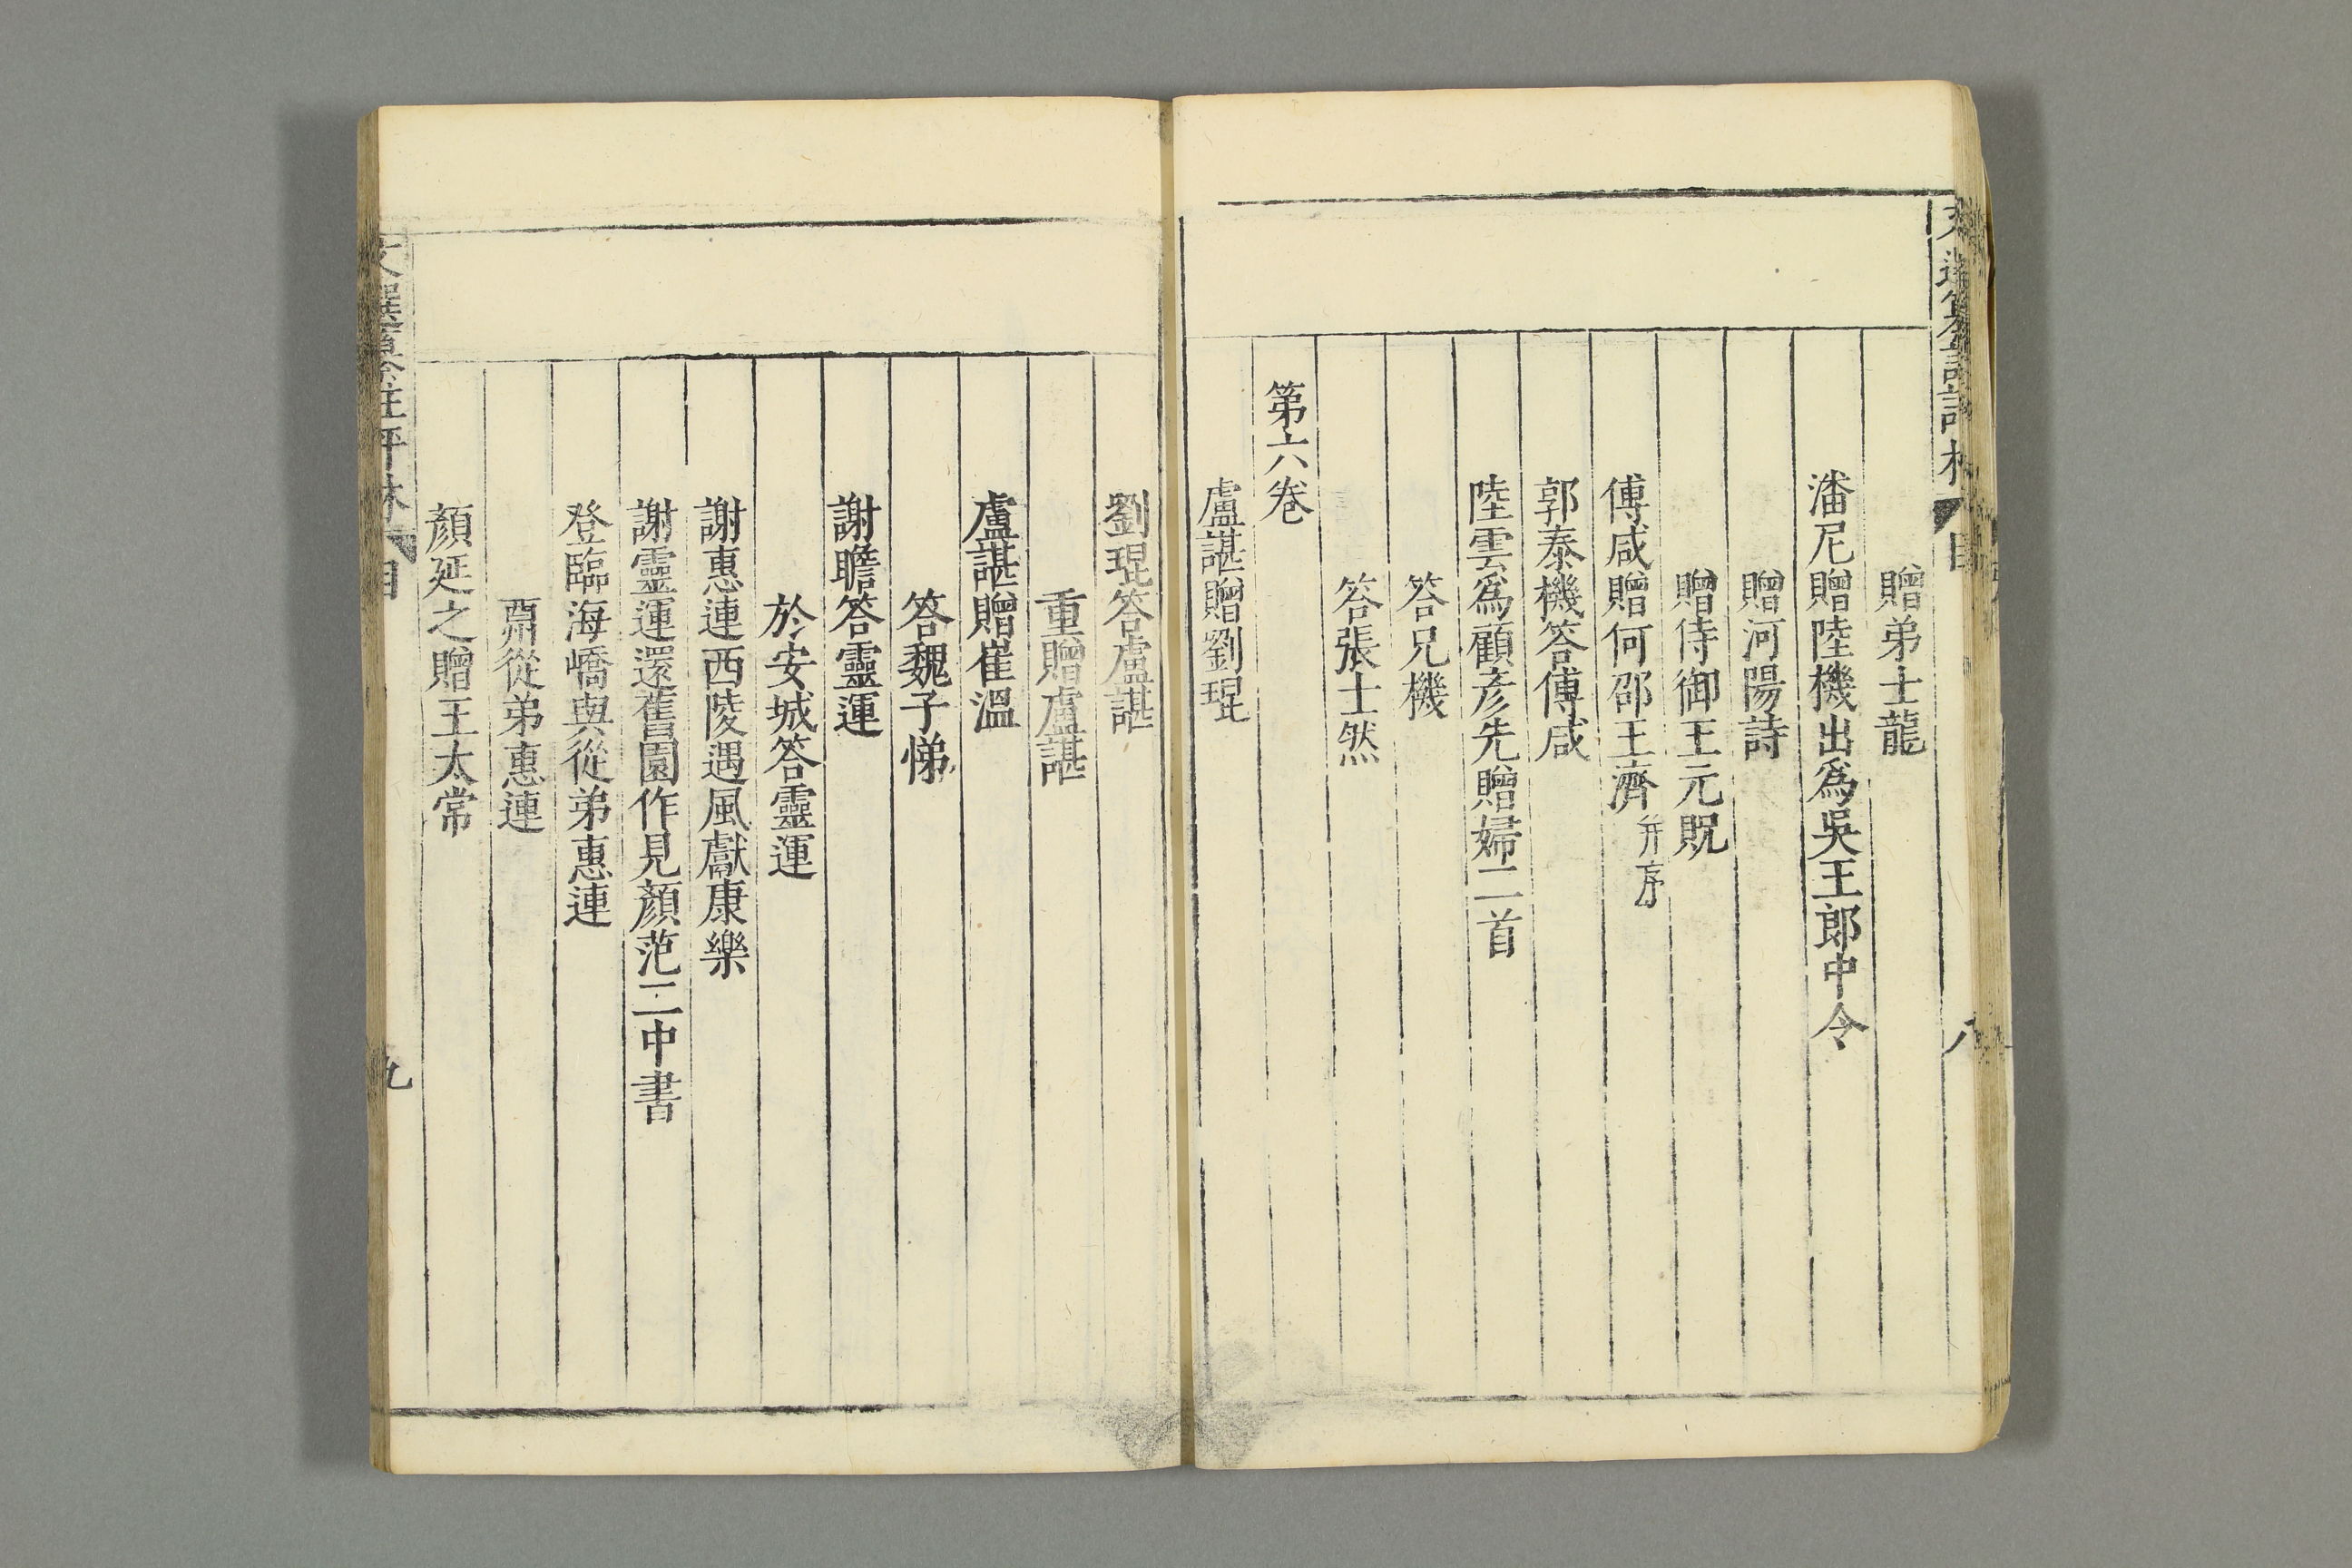 贈弟士龍
潘尼贈陸機出爲吳王郎中令
贈河陽詩
贈侍御王元貺
傅咸贈何邵王濟并序
郭泰機答傅咸
陸雲爲顧彦先贈婦二首
答兄機
答張士然
第六卷
盧諶贈劉琨
劉琨答盧諶
重贈盧諶
盧諶贈崔溫
答魏子悌
謝瞻答靈運
於安城答靈運
謝惠連西陵遇風獻康樂
謝靈運還舊園作見顏范二中書
登臨海嶠與從弟惠連
酬從弟惠連
顏延之贈王太常
文選纂註評林
目
九
八